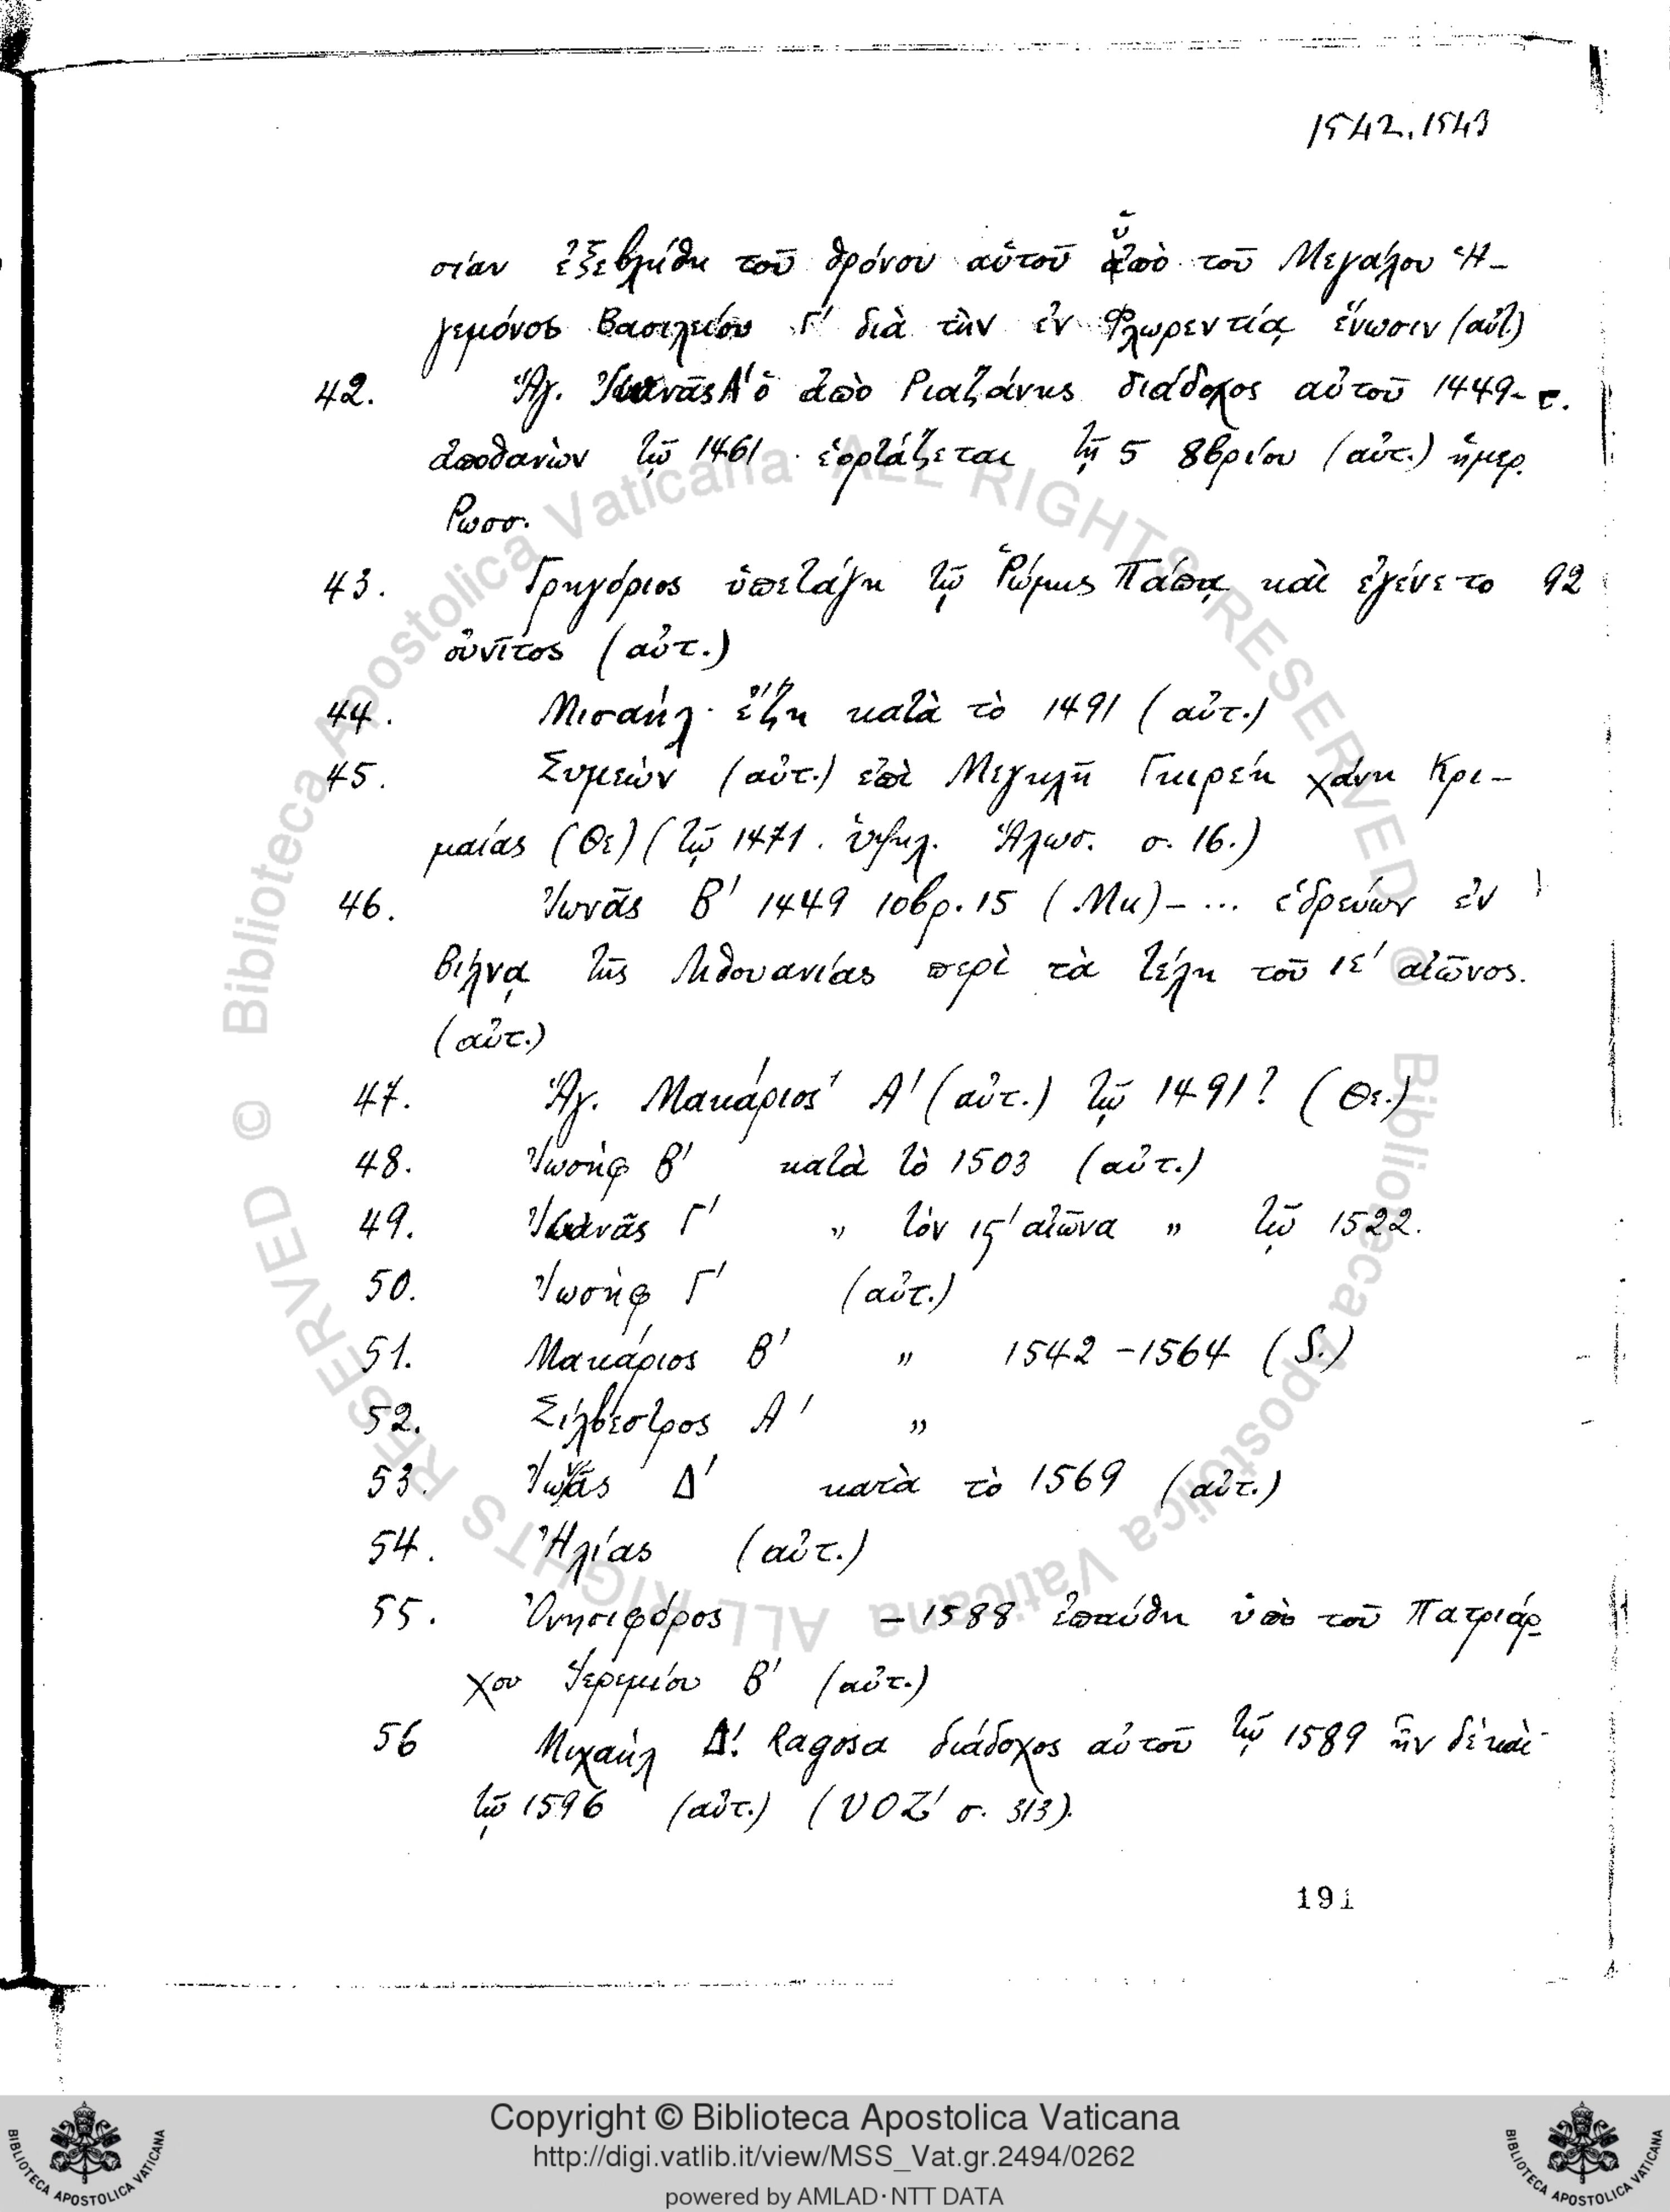 1542.1543
σίαν ἐξεβλήθη τοῦ θρόνου αὐτοῦ ὑπὸ τοῦ Μεγάλου Ἡ-
γεμόνος Βασιλείου Γ' διὰ τὴν ἐν Φλωρεντίᾳ ἕνωσιν (αὐτ.)
42. Ἅγ. Ἰωνᾶς Α' ὁ ἀπὸ Ριαζάνης διάδοχος αὐτοῦ 1449-τ.
ἀποθανὼν τῷ 1461 · ἑορτάζεται τῇ 5 8βρίου (αὐτ.) ἡμερ.
Ρωσσ.
43. Γρηγόριος ὑπετάγη τῷ Ῥώμης Πάπᾳ καὶ ἐγένετο 92
οὐνῖτος (αὐτ.)
44. Μισαήλ · ἔζη κατὰ τὸ 1491 (αὐτ.)
45. Συμεών (αὐτ.) ἐπὶ Μεγκλῆ Γκιρέη χάνη Κρι-
μαίας (Θε) (τῷ 1471. ὑψηλ. Ἅλωσ. σ. 16.)
46. Ἰωνᾶς Β' 1449 10βρ. 15 (Μκ) - ... ἑδρεύων ἐν
Βίλνᾳ τῆς Λιθουανίας περὶ τὰ τέλη τοῦ ιε' αἰῶνος.
(αὐτ.)
47. Ἅγ. Μακάριος Α' (αὐτ.) τῷ 1491? (Θε.)
48. Ἰωσὴφ Β' κατὰ τὸ 1503 (αὐτ.)
49. Ἰωνᾶς Γ' " τὸν ιϛ' αἰῶνα " τῷ 1522.
50. Ἰωσὴφ Γ' (αὐτ.)
51. Μακάριος Β' " 1542-1564 (S.)
52. Σίλβεστρος Α' "
53. Ἰωνᾶς Δ' κατὰ τὸ 1569 (αὐτ.)
54. Ἠλίας (αὐτ.)
55. Ὀνησιφόρος - 1588 ἐπαύθη ὑπὸ τοῦ Πατριάρ-
χου Ἱερεμίου Β' (αὐτ.)
56 Μιχαὴλ Δ'. Ragosa διάδοχος αὐτοῦ τῷ 1589 ἦν δὲ καὶ
τῷ 1596 (αὐτ.) (VOZ' σ. 313).
191
© Biblioteca Apostolica Vaticana ALL RIGHTS RESERVED
© Biblioteca Apostolica Vaticana ALL RIGHTS RESERVED
Copyright © Biblioteca Apostolica Vaticana
http://digi.vatlib.it/view/MSS_Vat.gr.2494/0262
powered by AMLAD·NTT DATA
BIBLIOTECA APOSTOLICA VATICANA
BIBLIOTECA APOSTOLICA VATICANA